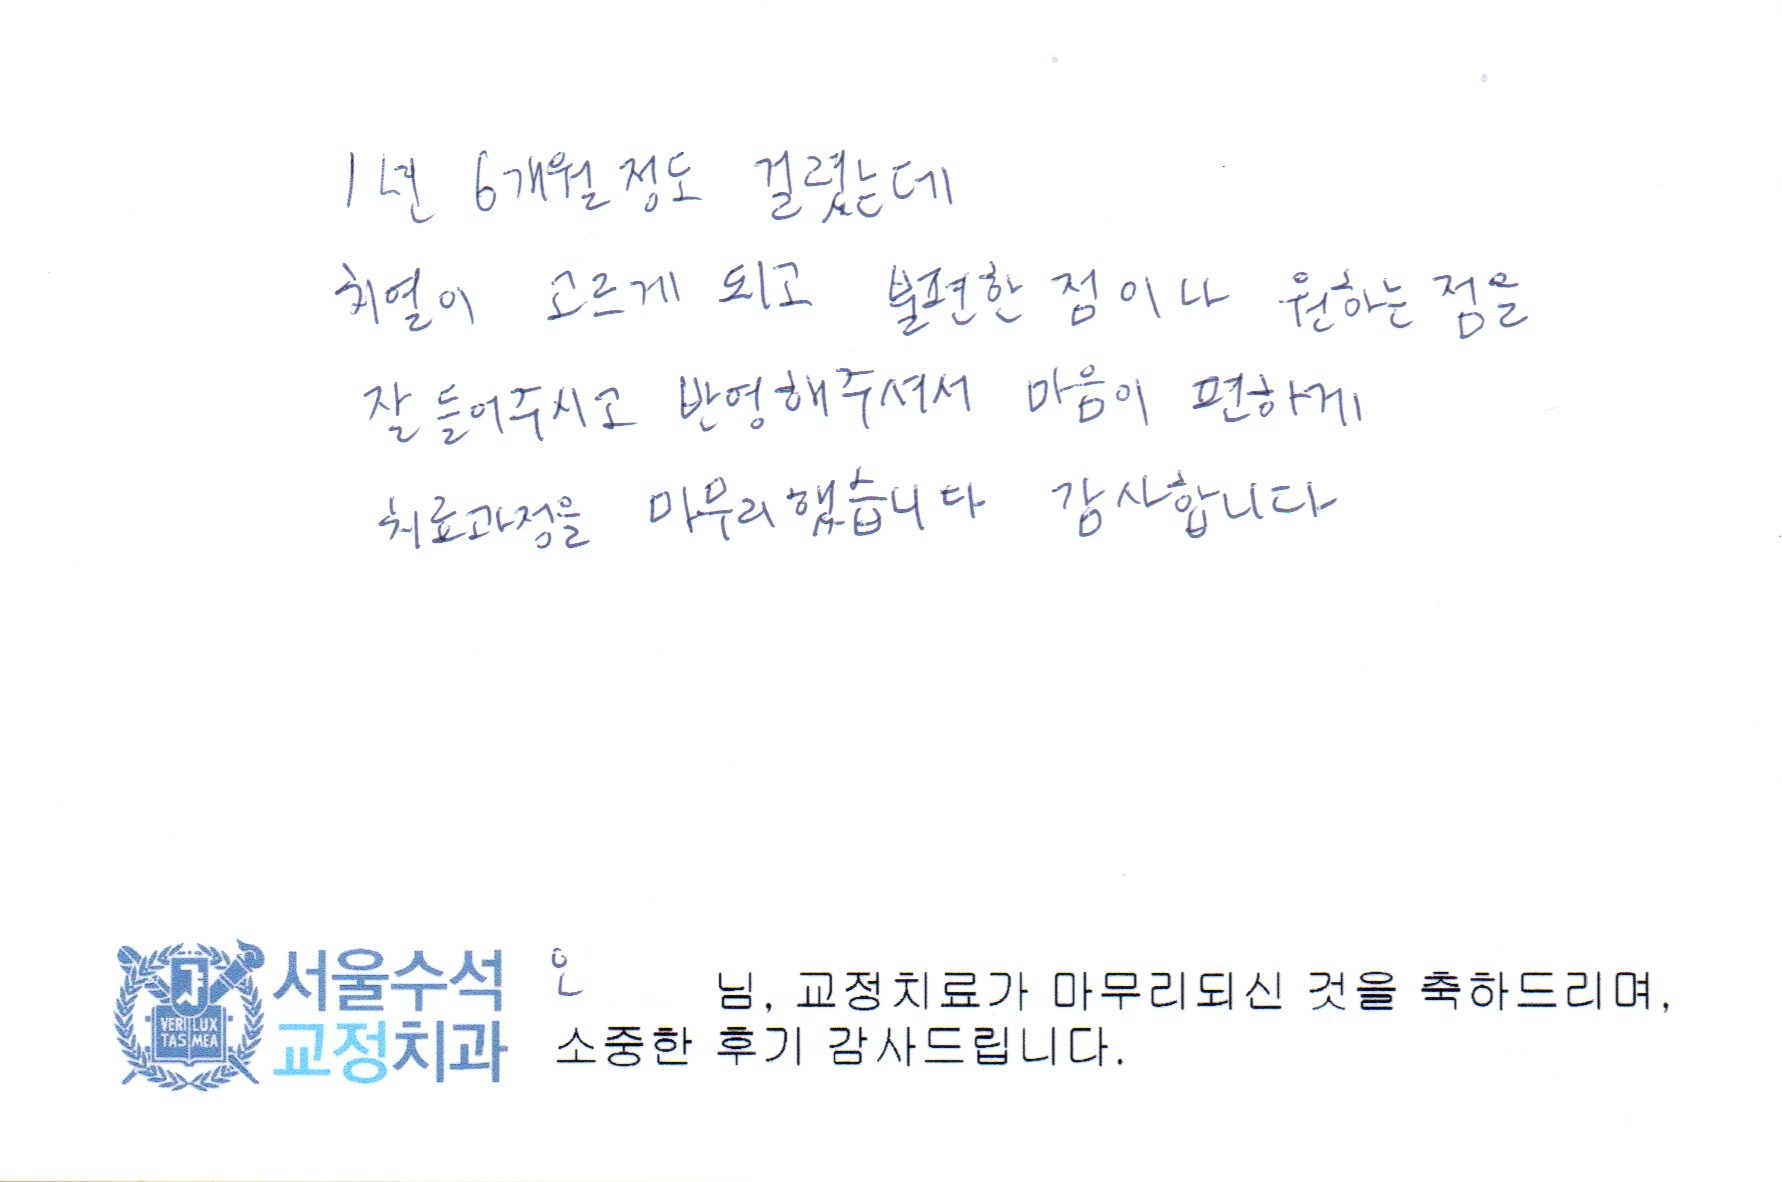 1년 6개월정도 걸렸는데
치열이 고르게 되고 불편한 점이나 원하는 점을
잘 들어주시고 반영해주셔서 마음이 편하게
치료과정을 마무리했습니다 감사합니다
VERI LUX
TAS MEA
서울수석
교정치과
오 님, 교정치료가 마무리되신 것을 축하드리며,
소중한 후기 감사드립니다.